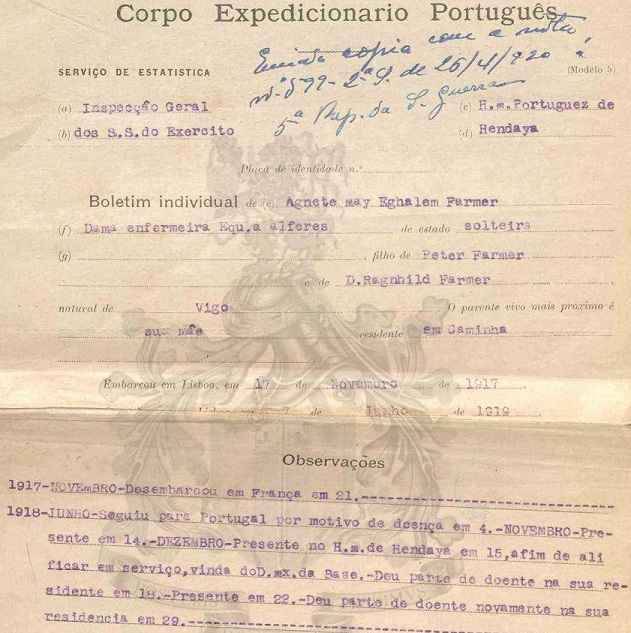 Corpo Expedicionario Português
Enviada copia com a nota
nº 599-2ª S. de 26/4/920 á
5ª Rep. da S. Guerra
SERVIÇO DE ESTATISTICA
(Modêlo 5)
(a) Inspecção Geral (c) H.m.Portuguez de
(b) dos S.S.do Exercito (d) Hendaya
Placa de identidade n.º
Boletim individual de (e) Agnete may Eghalem Farmer
(f) Dama enfermeira Equ.a alferes de estado solteira
(g) , filho de Peter Farmer
e de D.Ragnhild Farmer
natural de Vigo . O parente vivo mais proximo é
sua mãe residente em Caminha
Embarcou em Lisboa, em 17 de Novembro de 1917
7 de Junho de 1919
Observações
1917-NOVEMBRO-Desembarcou em França em 21.-
1918-JUNHO-Seguiu para Portugal por motivo de doença em 4.-NOVEMBRO-Pre-
sente em 14.-DEZEMBRO-Presente no H.m.de Hendaya em 15,afim de ali
ficar em serviço,vinda doD.mx.da Base.-Deu parte de doente na sua re-
sidente em 18.-Presente em 22.-Deu parte de doente novamente na sua
residencia em 29.-